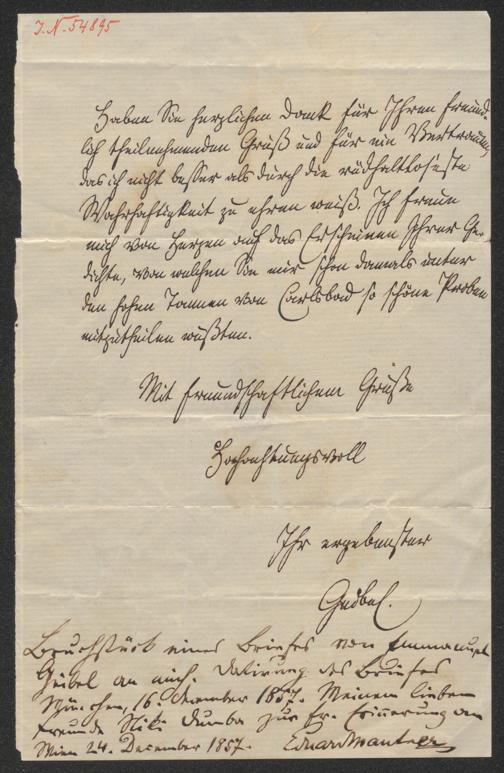 I.N. 54895
Haben Sie herzlichen Dank für Ihren freund-
lich theilnehmenden Gruß und für ein Vertrauen,
das ich nicht besser als durch die rückhaltloseste
Wahrhaftigkeit zu ehren weiß. Ich freue
mich von Herzen auf das Erscheinen Ihrer Ge-
dichte, von welchen Sie mir schon damals unter
den hohen Tannen von Carlsbad so schöne Proben
mitzutheilen wußten.
Mit freundschaftlichem Gruße
Hochachtungsvoll
Ihr ergebenster
Geibel.
Bruchstück eines Briefes von Emmanuel
Geibel an mich. Datirung des Briefes
München, 16. 1857. Meinem lieben
Freunde Niki Dumba zur Erinnerung an
Wien 24. December 1857. Eduard Mautner